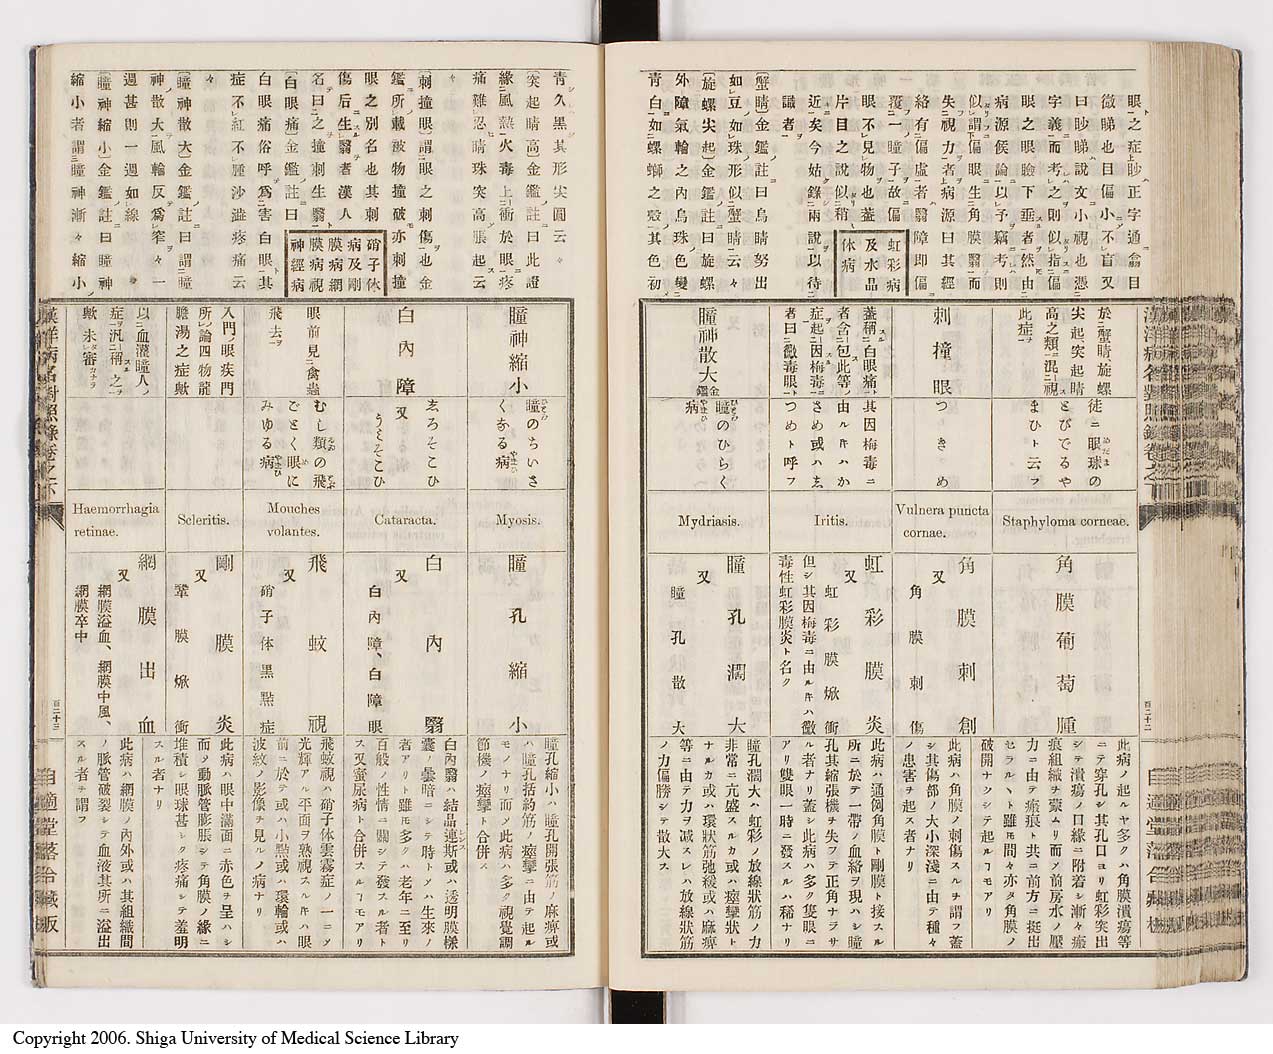 眼之症上眇正字通ニ翕目
微睇也目偏小不盲又
曰眇睇說文小視也憑
字義而考之則似指偏
眼之眼瞼下垂者然由
病源候論以予竊考則
似謂偏眼生角膜翳而
失視力者上病源曰其經
絡有偏虛者翳障即偏
覆一瞳子故偏
眼不見物也蓋
片目之說似稍
近矣今姑錄兩說以待
識者
虹彩病
及水晶
体病
(蟹睛)金鑑註曰烏睛努出
如豆如珠形似蟹睛云々
(旋螺尖起)金鑑註曰旋螺
外障氣輪之內烏珠色變
青白如螺螄之殼其色初
於蟹睛、旋螺
尖起、突起睛
高之類ニ混視
此症
徒ニ眼球の
とびでるや
まひト云フ
Staphyloma corneae.
角膜葡萄腫
此病ノ起ルヤ多クハ角膜潰瘍等
ニテ穿孔シ其孔口ヨリ虹彩突出
シテ潰瘍ノ口緣ニ附着シ漸々瘢
痕組織ヲ蒙ムリ而メ前房水ノ壓
力ニ由テ瘢痕ト共ニ前方ニ挺出
セラルヽト雖モ間々亦タ角膜ノ
破開ナクシテ起ルヿモアリ
刺撞眼
つきめ
Vulnera puncta
cornae.
角膜刺創
又
角膜刺傷
此病ハ角膜ノ刺傷スルヲ謂フ蓋
シ其傷部ノ大小深淺ニ由テ種々
ノ患害ヲ起ス者ナリ
蓋稱白眼痛
者含包此等
症起因梅毒
者曰黴毒眼
其因梅毒ニ
由ルキハか
さめ或ハま
つめト呼フ
Iritis.
虹彩膜炎
又
虹彩膜焮衝
但シ其因梅毒ニ由ルキハ黴
毒性虹彩膜炎ト名ク
此病ハ通例角膜ト剛膜ト接スル
所ニ於テ一帶ノ血絡ヲ現ハシ瞳
孔其縮張機ヲ失フテ正角ナラサ
ル者ナリ蓋シ此病ハ多ク隻眼ニ
アリ雙眼一時ニ發スルハ稀ナリ
瞳神散大金鑑
瞳のひらく
病
Mydriasis.
瞳孔濶大
又
瞳孔散大
瞳孔濶大ハ虹彩ノ放線狀筋ノ力
非常ニ亢盛スルカ或ハ痙攣狀ト
ナルカ或ハ環狀筋弛緩或ハ麻痺
等ニ由テ力ヲ減スレハ放線狀筋
ノ力偏勝シテ散大ス
百二十二
青久黑其形尖圓云々
(突起睛高)金鑑註曰此證
緣風熱火毒上衝於眼疼
痛難忍睛珠突高脹起云
々
(刺撞眼)謂眼之刺傷也金
鑑所載被物撞破亦刺撞
眼之別名也其刺
傷后生翳者漢人
名曰之撞刺生翳
(白眼痛)金鑑註曰
白眼痛俗呼爲害白眼其
症不紅不腫沙澁疼痛云
々
硝子体
病及剛
膜病網
膜病視
神經病
(瞳神散大)金鑑註曰謂瞳
神散大風輪反爲窄々一
週甚則一週如線
(瞳神縮小)金鑑註曰瞳神
縮小者謂瞳神漸々縮小
瞳神縮小
瞳のちいさ
くなる病
Myosis.
瞳孔縮小
瞳孔縮小ハ瞳孔開張筋ノ麻痺或
ハ瞳孔括約筋ノ痙攣ニ由テ起ル
モノナリ而メ此病ハ多ク視覺調
節機ノ痙攣ト合併ス
白內障
志ろそこひ
又
うみそこひ
Cataracta.
白內翳
又
白內障、白障眼
白內翳ハ結晶連斯或ハ透明膜様
囊ノ曇暗ニシテ時トメハ生來ノ
者アリト雖モ多クハ老年ニ至リ
百般ノ性情ニ關シテ發スル者ト
ス又蜜尿病ト合併スルヿモアリ
眼前見禽蟲
飛去
むし類の飛
ごとく眼に
みゆる病
Mouches
volantes.
飛蚊視
又
硝子体黑點症
飛蚊視ハ硝子体雲霧症ノ一ニメ
光輝アル平面ヲ熟視スルキハ眼
前ニ於テ或ハ小點或ハ環輪或ハ
波紋ノ影像ヲ見ルノ病ナリ
入門ノ眼疾門
所論四物龍
膽湯之症歟
Scleritis.
剛膜炎
又
鞏膜焮衝
此病ハ眼中滿面ニ赤色ヲ呈ハシ
而メ動脈管膨脹シテ角膜ノ緣ニ
堆積シ眼球甚シク疼痛シテ羞明
スル者ナリ
以血灌瞳人ノ
症汎稱之
歟未審
Haemorrhagia
retinae.
網膜出血
又
網膜溢血、網膜中風、
網膜卒中
此病ハ網膜ノ內外或ハ其組織間
ノ脈管破裂シテ血液其所ニ溢出
スル者ヲ謂フ
漢洋病名對照錄卷之下
百二十三
自適堂落合藏版
Copyright 2006. Shiga University of Medical Science Library